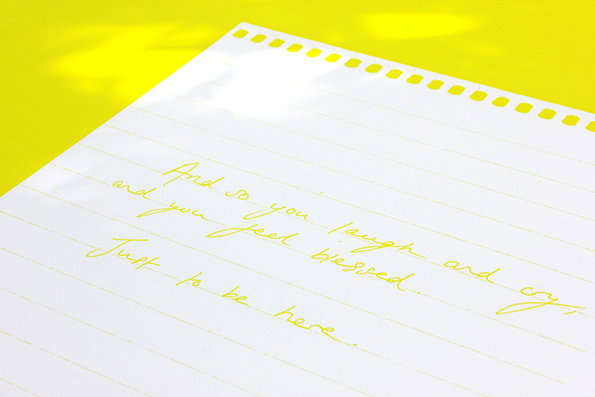 And so you laugh and cry,
and you feel blessed
Just to be here.